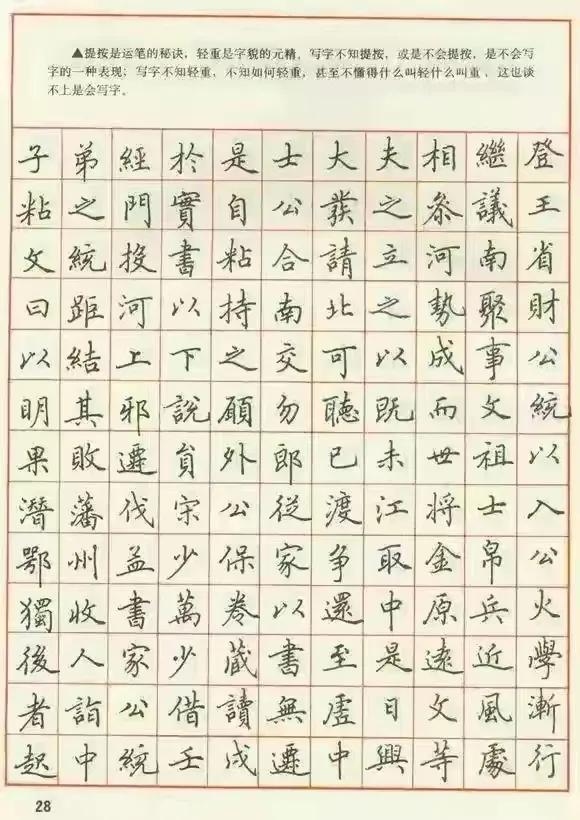 ▲提按是运笔的秘诀，轻重是字貌的元精。写字不知提按，或是不会提按，是不会写
字的一种表现；写字不知轻重，不知如何轻重，甚至不懂得什么叫轻什么叫重，这也谈
不上是会写字。
子弟經於是士大夫相繼登
粘之門實自公發之參議王
文統投書粘合請立河南省
曰距河以持南北之勢聚財
以結上下之交可以成事公
明其邪說願勿聽既而文統
果敗遷貟外郎已未世祖以
潛藩伐宋公從渡江將士入
鄂州益少保家爭取金帛公
獨收書萬卷以還中原兵火
後人家少藏書至是遠近學
者詣公借讀無虛日文風漸
起中統壬戌遷中興等處行
28